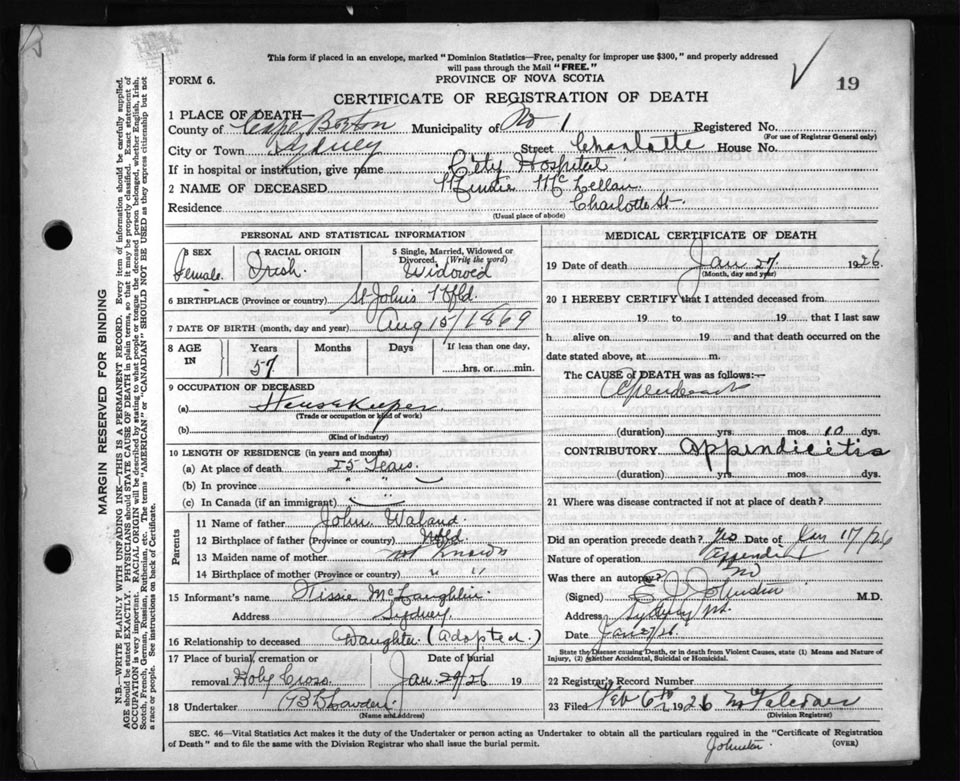 This form if placed in an envelope, marked "Dominion Statistics—Free, penalty for improper use $300," and properly addressed
will pass through the Mail "FREE."
FORM 6.
PROVINCE OF NOVA SCOTIA
19
CERTIFICATE OF REGISTRATION OF DEATH
1 PLACE OF DEATH—
County of Cape Breton Municipality of No 1 Registered No.
(For use of Registrar General only)
City or Town Sydney Street Charlotte House No.
If in hospital or institution, give name City Hospital
2 NAME OF DECEASED McLellan
Residence Charlotte St.
(Usual place of abode)
PERSONAL AND STATISTICAL INFORMATION
3 SEX
Female.
4 RACIAL ORIGIN
Irish.
5 Single, Married, Widowed or
Divorced, (Write the word)
Widowed
6 BIRTHPLACE (Province or country) St John's Nfld.
7 DATE OF BIRTH (month, day and year) Aug 15/1869
8 AGE IN
Years Months Days If less than one day,
57 hrs. or min.
9 OCCUPATION OF DECEASED
(a) Housekeeper.
(Trade or occupation or kind of work)
(b)
(Kind of industry)
10 LENGTH OF RESIDENCE (in years and months)
(a) At place of death 25 Years.
(b) In province " "
(c) In Canada (if an immigrant)
Parents
11 Name of father John
12 Birthplace of father (Province or country) Nfld.
13 Maiden name of mother not known
14 Birthplace of mother (Province or country) " "
15 Informant's name McLaughlin
Address Sydney.
16 Relationship to deceased Daughter (Adopted.)
17 Place of burial, cremation or Date of burial
removal Holy Cross Jan. 29/26 19
18 Undertaker
(Name and address)
MEDICAL CERTIFICATE OF DEATH
19 Date of death Jan 27. 1926.
(Month, day and year)
20 I HEREBY CERTIFY that I attended deceased from
19 to 19 that I last saw
h alive on 19 and that death occurred on the
date stated above, at m.
The CAUSE of DEATH was as follows:—
(duration) yrs. mos. 10 dys.
CONTRIBUTORY appindicitis
(duration) yrs. mos. dys.
21 Where was disease contracted if not at place of death?
Did an operation precede death? Yes Date of Jan 17/26
Nature of operation
Was there an autopsy? No
(Signed) Johnston M.D.
Address Sydney
Date
State the Disease causing Death, or in death from Violent Causes, state (1) Means and Nature of
Injury, (2) Whether Accidental, Suicidal or Homicidal.
22 Registrar's Record Number
23 Filed Feb 6th 1926
(Division Registrar)
SEC. 46—Vital Statistics Act makes it the duty of the Undertaker or person acting as Undertaker to obtain all the particulars required in the "Certificate of Registration
of Death" and to file the same with the Division Registrar who shall issue the burial permit.
Johnston
(OVER)
MARGIN RESERVED FOR BINDING
N.B.—WRITE PLAINLY WITH UNFADING INK—THIS IS A PERMANENT RECORD. Every item of information should be carefully supplied.
AGE should be stated EXACTLY. PHYSICIANS should STATE CAUSE OF DEATH in plain terms, so that it may be properly classified. Exact statement of
OCCUPATION is very important. RACIAL ORIGIN will be described by stating to what people or tongue the deceased person belonged, whether English, Irish,
Scotch, French, German, Russian, Ruthenian, etc. The terms "AMERICAN" or "CANADIAN" SHOULD NOT BE USED as they express citizenship but not
a race or people. See instructions on back of Certificate.